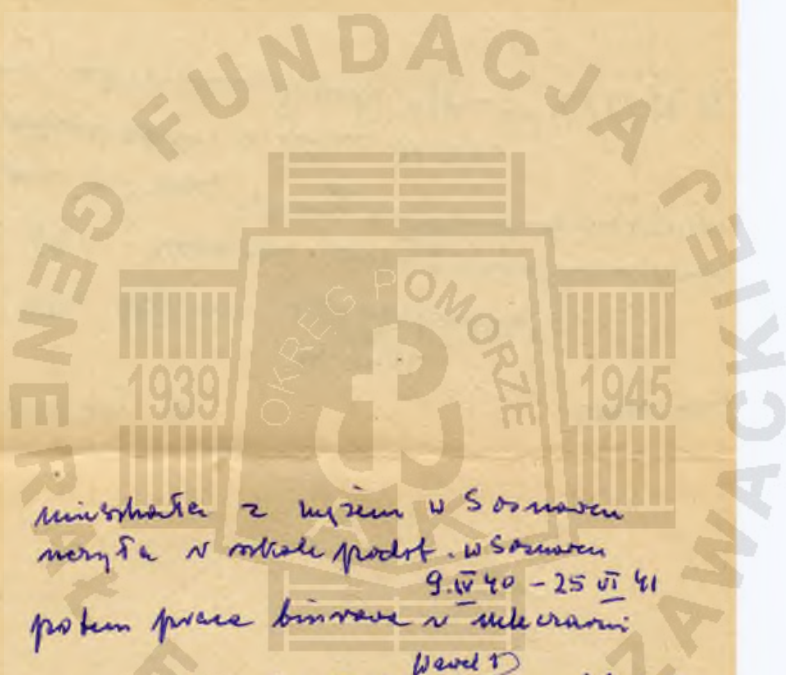 FUNDACJA GENERAŁ ZAWACKIEJ
OKRĘG POMORZE
1939 1945
AK
mieszkała z mężem w Sosnowcu
uczyła w szkole podst. w Sosnowcu
9.IV 40 – 25 VI 41
potem praca biurowa w mleczarni